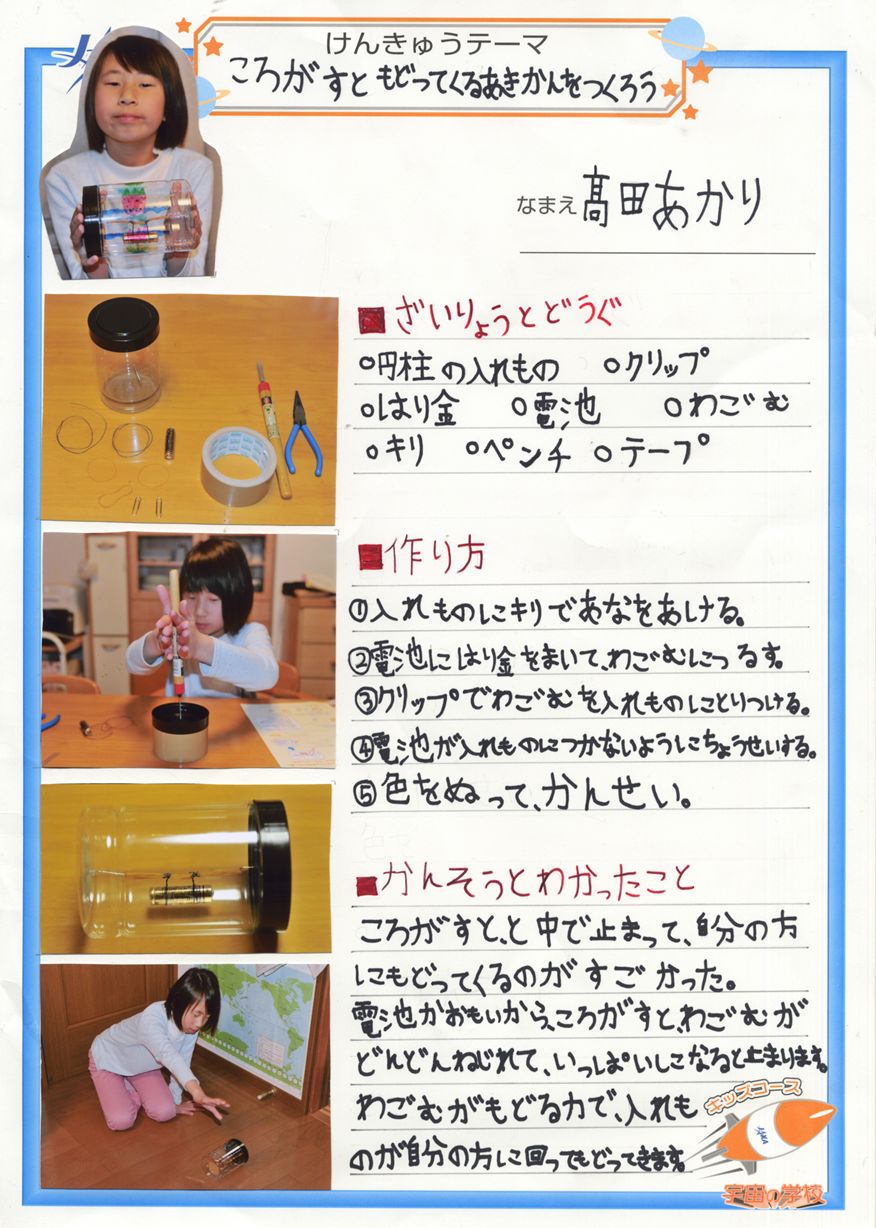 けんきゅうテーマ
ころがすともどってくるあきかんをつくろう
なまえ 髙田あかり
■ざいりょうとどうぐ
○円柱の入れもの ○クリップ
○はり金 ○電池 ○わごむ
○キリ ○ペンチ ○テープ
■作り方
①入れものにキリであなをあける。
②電池にはり金をまいて、わごむにつるす。
③クリップでわごむを入れものにとりつける。
④電池が入れものにつかないようにちょうせいする。
⑤色をぬって、かんせい。
■かんそうとわかったこと
ころがすと、と中で止まって、自分の方
にもどってくるのがすごかった。
電池がおもいから、ころがすと、わごむが
どんどんねじれて、いっぱいになると止まります。
わごむがもどる力で、入れも
のが自分の方に回ってもどってきます。
キッズコース
宇宙の学校